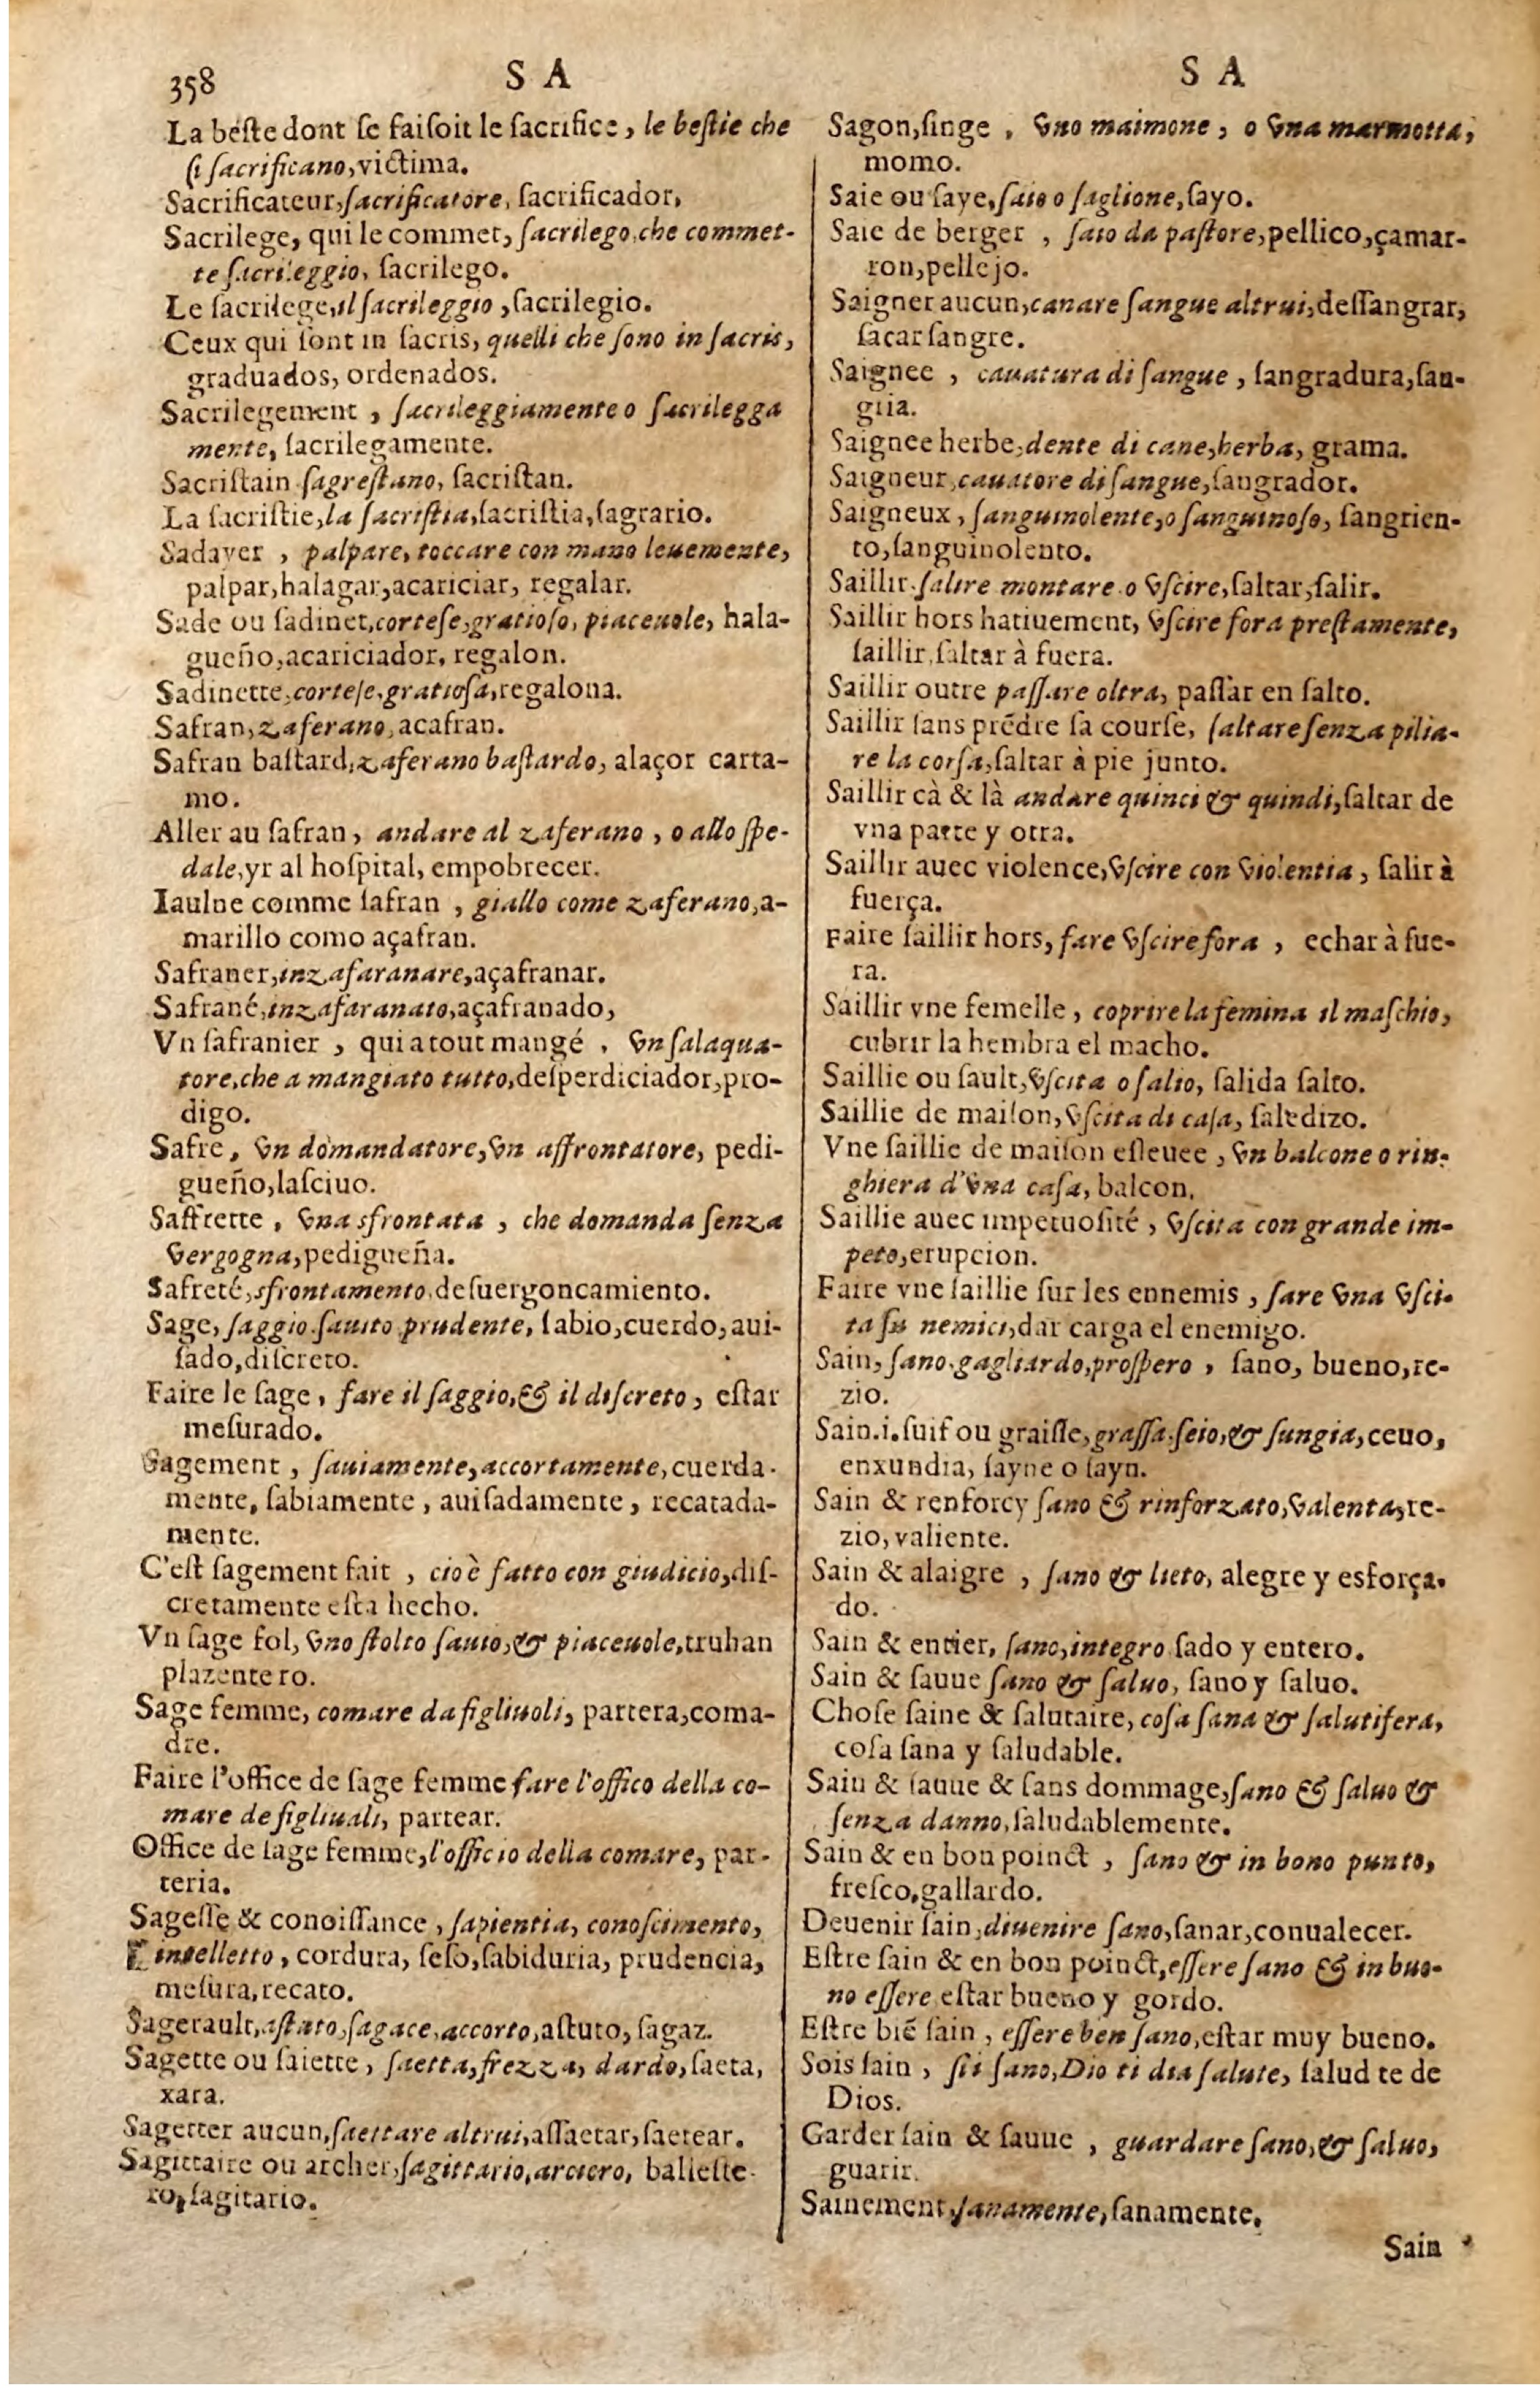 358 S A
La béste dont se faisoit le sacrifice, le bestie che
si sacrificano, victima.
Sacrificateur, sacrificatore, sacrificador,
Sacrilege, qui le commet, sacrilego, che commet-
te sacrileggio, sacrilego.
Le sacrilege, il sacrileggio, sacrilegio.
Ceux qui sont in sacris, quelli che sono in sacris,
graduados, ordenados.
Sacrilegement, sacrileggiamente o sacrilegga
mente, sacrilegamente.
Sacristain sagrestano, sacristan.
La sacristie, la sacristia, sacristia, sagrario.
Sadayer, palpare, toccare con mano leuemente,
palpar, halagar, acariciar, regalar.
Sade ou sadinet, cortese, gratioso, piaceuole, hala-
gueño, acariciador, regalon.
Sadinette, cortese, gratiosa, regalona.
Safran, zaferano, acafran.
Safran bastard, zaferano bastardo, alaçor carta-
mo.
Aller au safran, andare al zaferano, o allo spe-
dale, yr al hospital, empobrecer.
Iaulne comme safran, giallo come zaferano, a-
marillo como açafran.
Safraner, inzafaranare, açafranar.
Safrané, inzafaranato, açafranado,
Vn safranier, qui a tout mangé, vn salaqua-
tore, che a mangiato tutto, desperdiciador, pro-
digo.
Safre, vn domandatore, vn affrontatore, pedi-
gueño, lasciuo.
Saffrette, vna sfrontata, che domanda senza
vergogna, pedigueña.
Safreté, sfrontamento, desuergoncamiento.
Sage, saggio sauito prudente, sabio, cuerdo, aui-
sado, discreto.
Faire le sage, fare il saggio, & il discreto, estar
mesurado.
Sagement, sauiamente, accortamente, cuerda-
mente, sabiamente, auisadamente, recatada-
mente.
C'est sagement fait, cio è fatto con giudicio, dis-
cretamente esta hecho.
Vn sage fol, vno stolto sauio, & piaceuole, truhan
plazentero.
Sage femme, comare da figliuoli, partera, coma-
dre.
Faire l'office de sage femme fare l'offico della co-
mare de figliuali, partear.
Office de sage femme, l'officio della comare, par-
teria.
Sagesse & conoissance, sapientia, conoscimento,
intelletto, cordura, seso, sabiduria, prudencia,
mesura, recato.
Sagerault, astuto, sagace, accorto, astuto, sagaz.
Sagette ou saiette, saetta, frezza, dardo, saeta,
xara.
Sagetter aucun, saettare altrui, assaetar, saetear.
Sagittaire ou archer, sagittario, arciero, balleste-
ro, sagitario.
S A
Sagon, singe, vno maimone, o vna marmotta,
momo.
Saie ou saye, saio o saglione, sayo.
Saie de berger, saio da pastore, pellico, çamar-
ron, pellejo.
Saigner aucun, canare sangue altrui, dessangrar,
sacar sangre.
Saignee, cauatura di sangue, sangradura, san-
gria.
Saignee herbe, dente di cane, herba, grama.
Saigneur, cauatore di sangue, sangrador.
Saigneux, sanguinolente, o sanguinoso, sangrien-
to, sanguinolento.
Saillir salire montare o vscire, saltar, salir.
Saillir hors hatiuement, vscire fora prestamente,
saillir, saltar à fuera.
Saillir outre passare oltra, passar en salto.
Saillir sans prẽdre sa course, saltare senza pilia-
re la corsa, saltar à pie junto.
Saillir cà & là andare quinci & quindi, saltar de
vna parte y otra.
Saillir auec violence, vscire con violentia, salir à
fuerça.
Faire saillir hors, fare vscire fora, echar à fue-
ra.
Saillir vne femelle, coprire la femina il maschio,
cubrir la hembra el macho.
Saillie ou sault, vscita o salio, salida salto.
Saillie de maison, vscita di casa, saledizo.
Vne saillie de maison esleuee, vn balcone o rin-
ghiera d'vna casa, balcon.
Saillie auec impetuosité, vscita con grande im-
peto, erupcion.
Faire vne saillie sur les ennemis, fare vna vsci-
ta su nemici, dar carga el enemigo.
Sain, sano, gagliardo, prospero, sano, bueno, re-
zio.
Sain. i. suif ou graisse, grassa, seio, & sungia, ceuo,
enxundia, sayne o sayn.
Sain & renforcy sano & rinforzato, valenta, re-
zio, valiente.
Sain & alaigre, sano & lieto, alegre y esforça-
do.
Sain & entier, sano, integro sado y entero.
Sain & sauue sano & saluo, sano y saluo.
Chose saine & salutaire, cosa sana & salutifera,
cosa sana y saludable.
Sain & sauue & sans dommage, sano & saluo &
senza danno, saludablemente.
Sain & en bon poinct, sano & in bono punto,
fresco, gallardo.
Deuenir sain, diuenire sano, sanar, conualecer.
Estre sain & en bon poinct, essere sano & in buo-
no essere estar bueno y gordo.
Estre biẽ sain, essere ben sano, estar muy bueno.
Sois sain, sii sano, Dio ti dia salute, salud te de
Dios.
Garder sain & sauue, guardare sano, & saluo,
guarir.
Sainement, sanamente, sanamente.
Sain